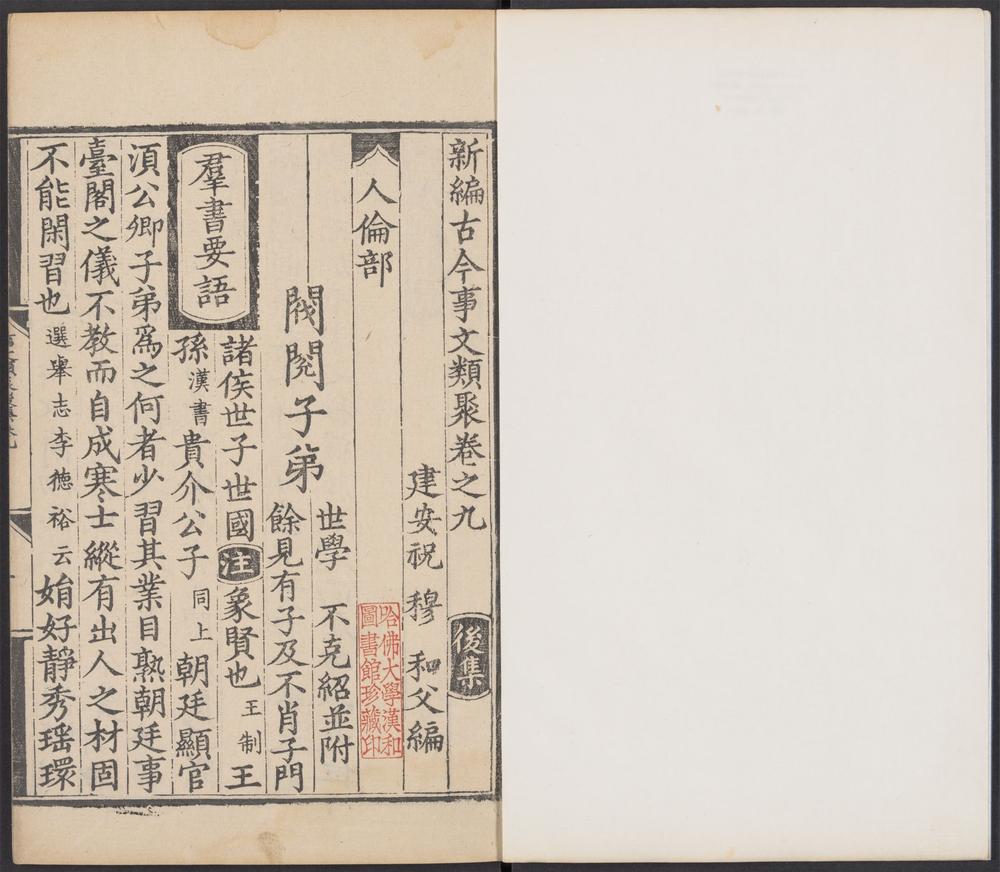 新編古今事文類聚卷之九 後集
建安祝 穆 和父編
哈佛大學漢和
圖書館珍藏印
人倫部
閥閱子弟 世學 不克紹並附
餘見有子及不肖子門
羣書要語
諸侯世子世國 注 象賢也 王制 王
孫 漢書 貴介公子 同上 朝廷顯官
湏公卿子弟爲之何者少習其業目熟朝廷事
臺閣之儀不教而自成寒士縱有出人之材固
不能閑習也 選舉志李德裕云 娋好靜秀瑶環